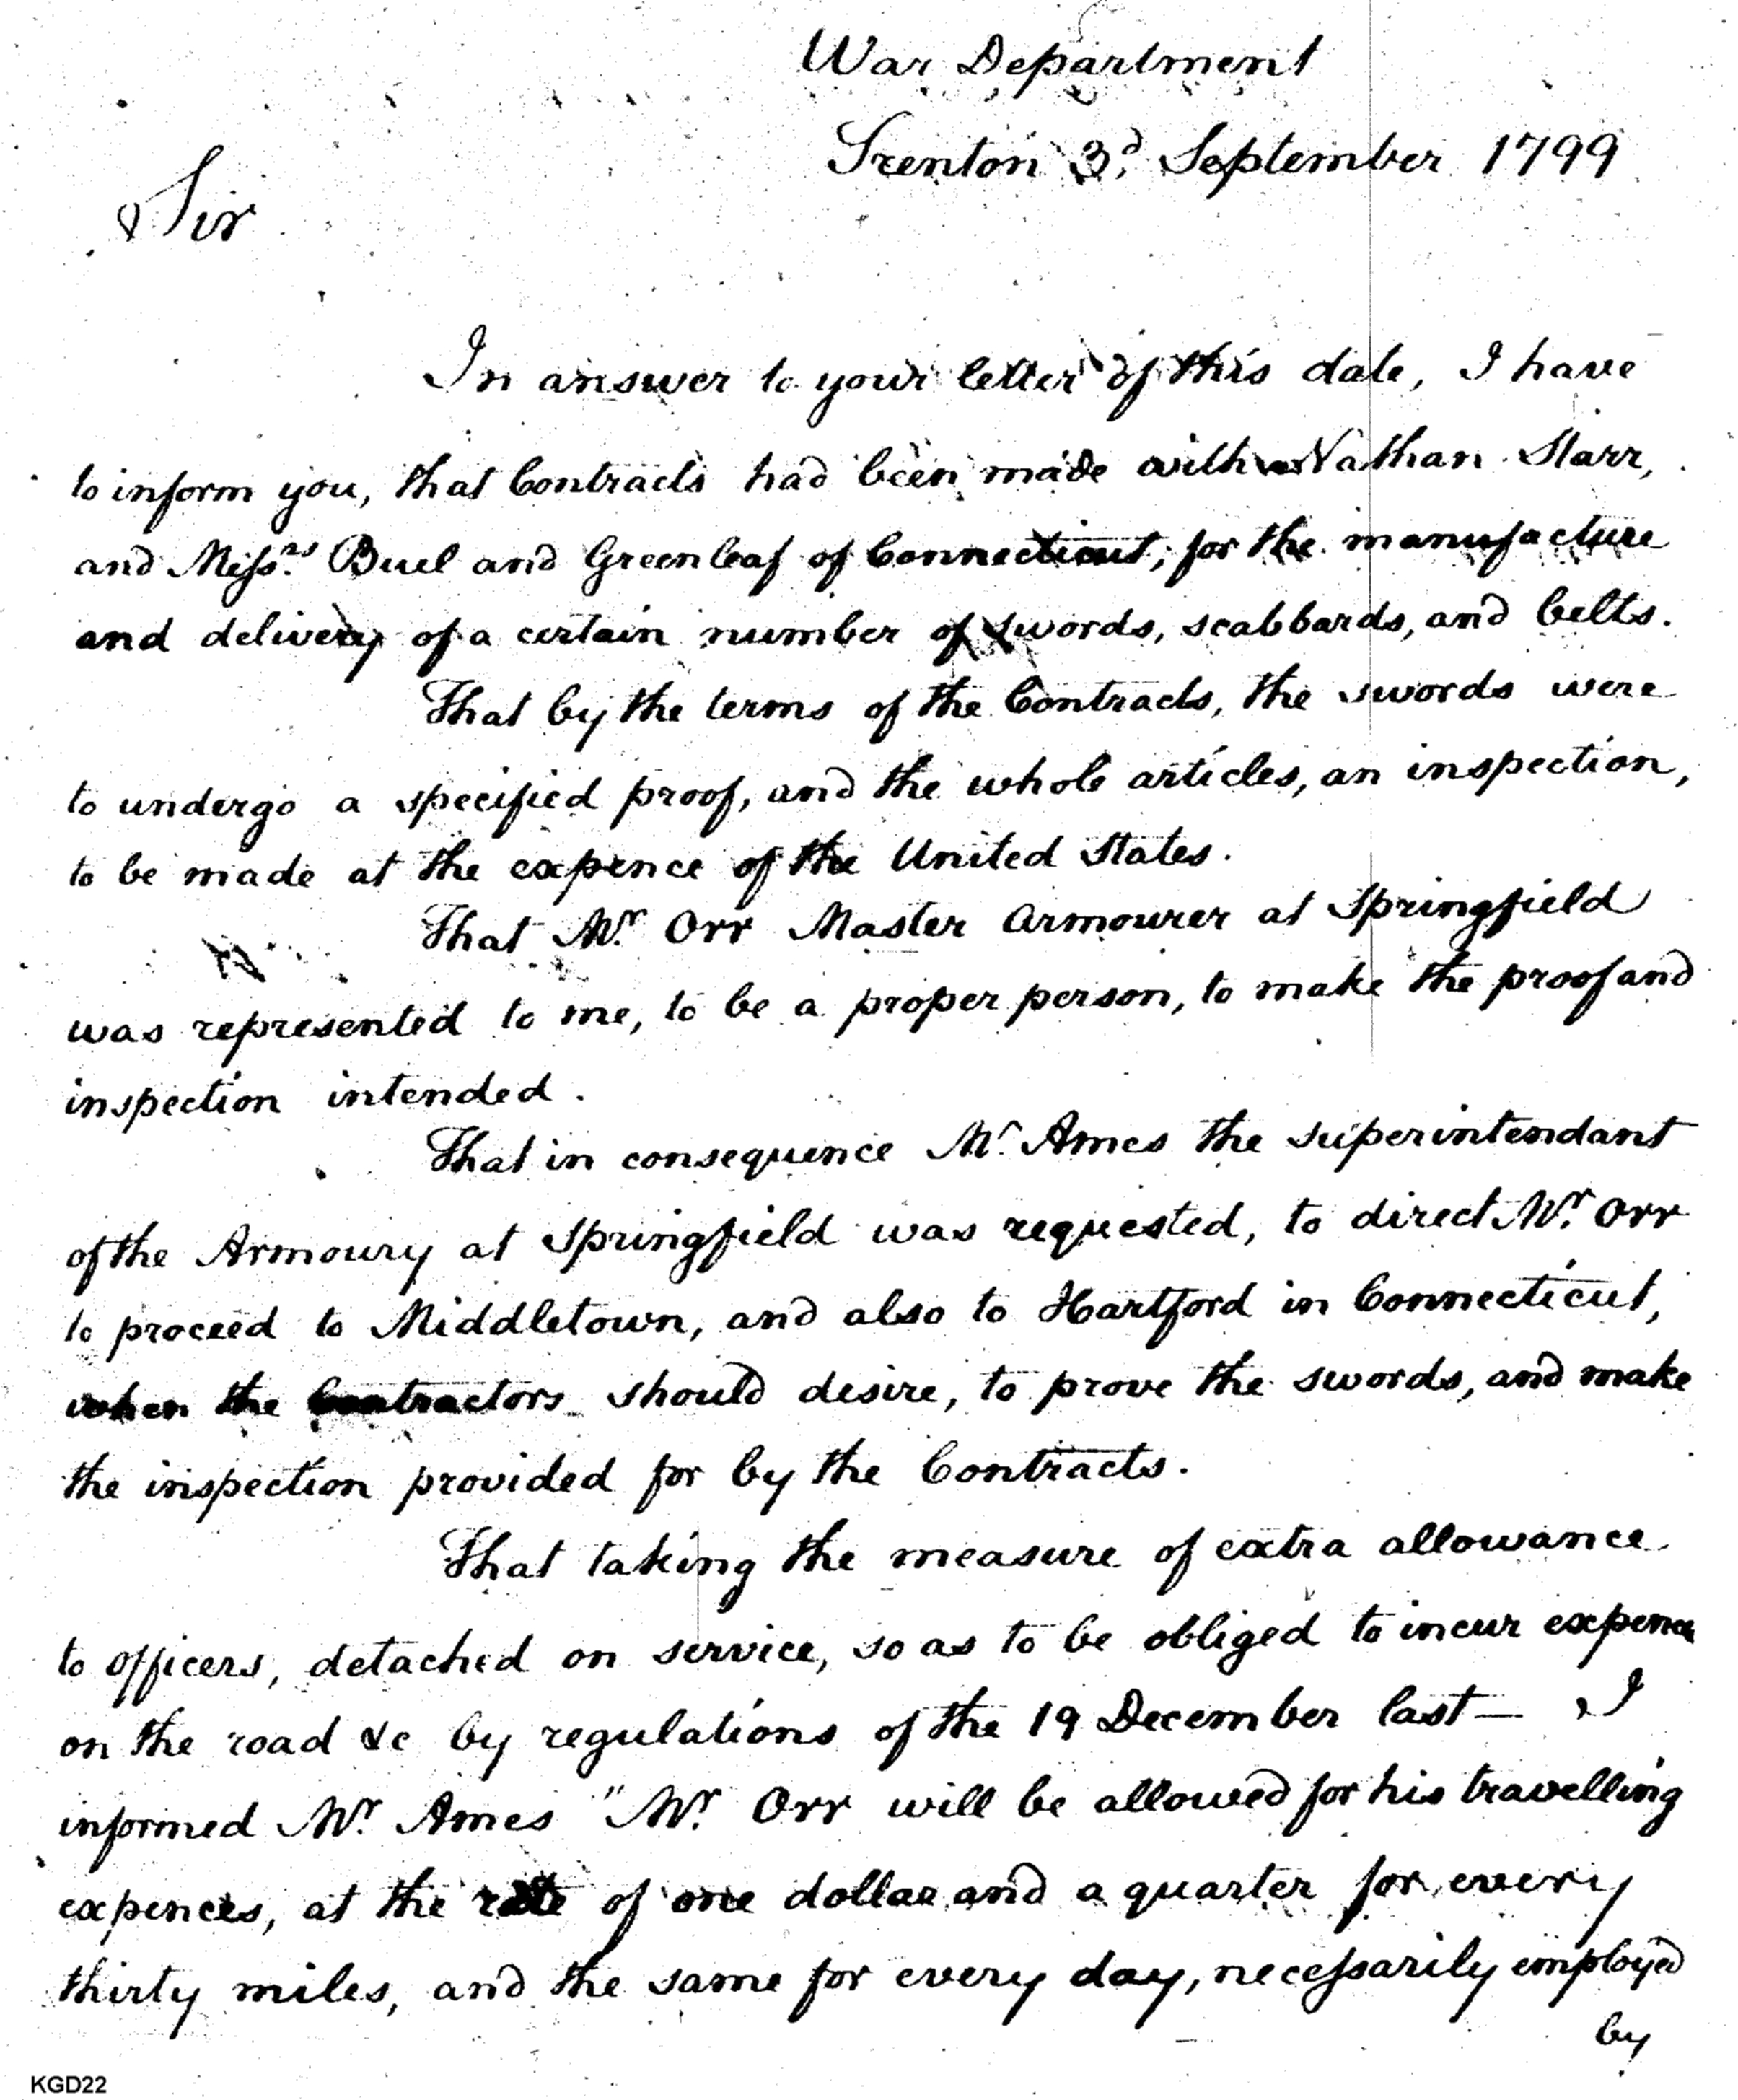 War Department
Trenton 3d. September 1799
Sir
In answer to your letter of this date, I have
to inform you, that Contracts had been made with Nathan Starr,
and Messrs. Buel and Greenleaf of Connecticut, for the manufacture
and delivery of a certain number of swords, scabbards, and belts.
That by the terms of the Contracts, the swords were
to undergo a specified proof, and the whole articles, an inspection,
to be made at the expence of the United States.
That Mr. Orr Master Armourer at Springfield
was represented to me, to be a proper person, to make the proof and
inspection intended.
That in consequence Mr. Ames the superintendant
of the Armoury at Springfield was requested, to direct Mr. Orr
to proceed to Middletown, and also to Hartford in Connecticut,
when the Contractors should desire, to prove the swords, and make
the inspection provided for by the Contracts.
That taking the measure of extra allowance
to officers, detached on service, so as to be obliged to incur expence
on the road &c by regulations of the 19 December last— I
informed Mr. Ames "Mr. Orr will be allowed for his travelling
expences, at the rate of one dollar and a quarter for every
thirty miles, and the same for every day, necessarily employed
by
KGD22